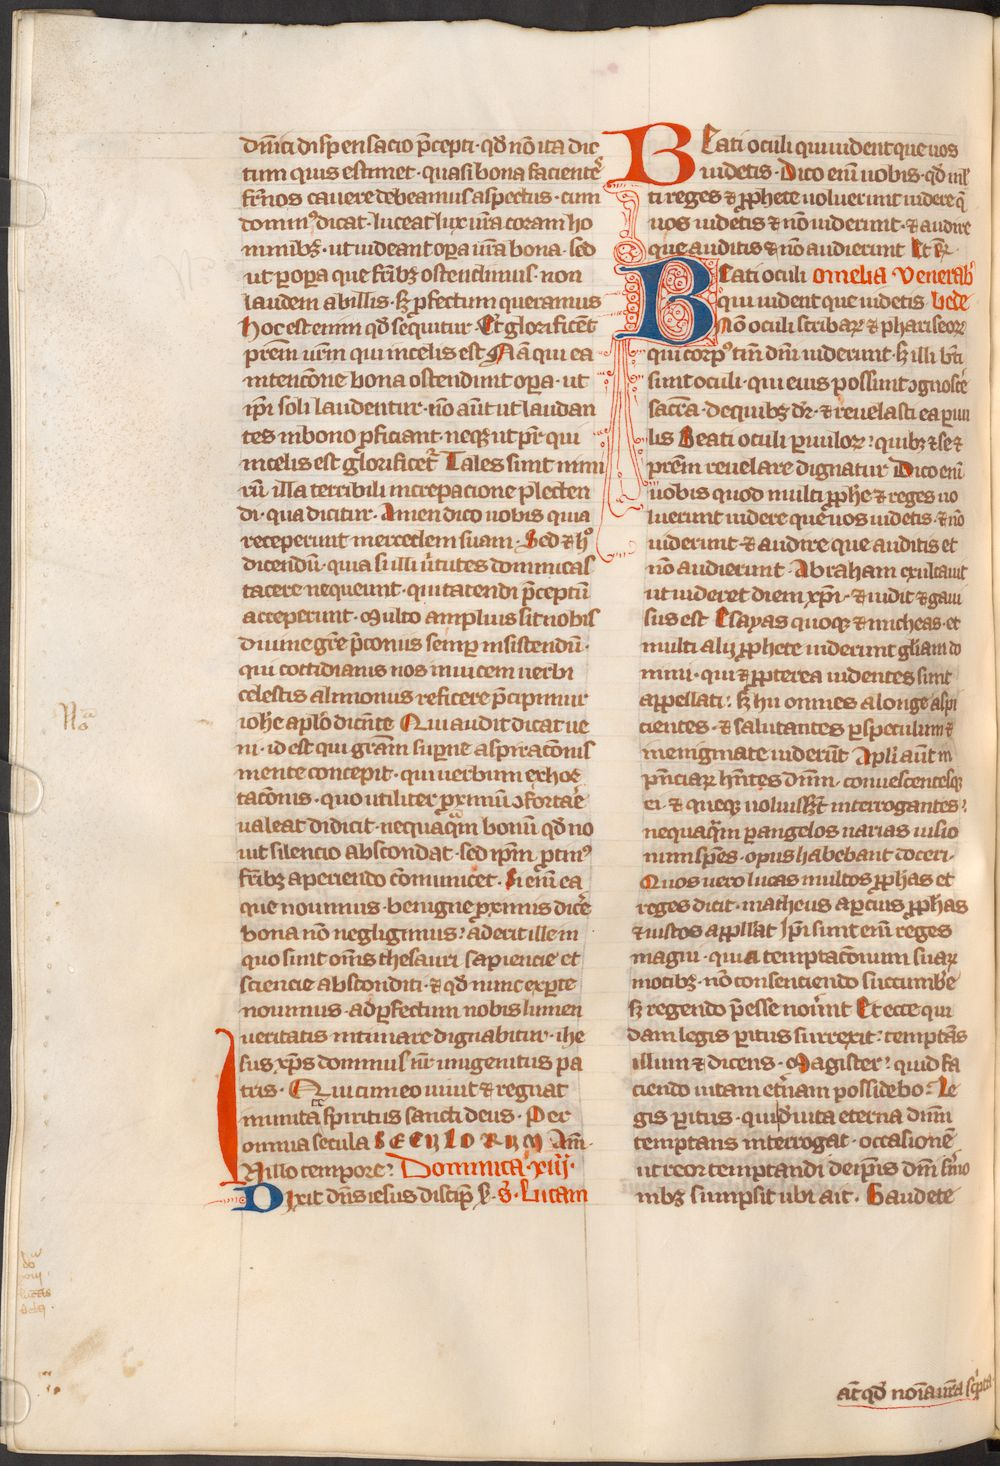 dn̄ici dispensacio p̄cepti · qd̄ nō ita dic
tum quis estimet · quasi bona faciente᷑
fr̄nos cauere debeamus aspectus · cum
dominꝰ dicat · luceat lux ur̄a coram ho
minibꝫ · ut uideant opa ur̄a bona · sed
ut ꝑ opa que frībꝫ ostendimus · non
laudem ab illis · sꝫ ꝓfectum queramus
hoc est enim qd̄ sequitur · Et glorificēt
prēm ur̄m qui in celis est Nā qui ea
intencōne bona ostendunt opa · ut
ip̄i soli laudentur · nō aūt ut laudan
tes in bono ꝓficiant · neqꝫ ut pr̄ qui
in celis est glorificet᷑ Tales sunt nimi
rū illa terribili increpacione plecten
di · qua dicitur · Amen dico uobis quia
receperunt mercedem suam · Sed ⁊ hͦ
dicendū · quia si illi uirtutes dominicas
tacere nequeunt · qui tacendi p̄ceptū
acceperunt · Multo amplius sit nobis
diuine grē p̄coniis semꝑ insistendū ·
qui cottidianis nos inuicem uerbi
celestis alimoniis reficere p̄cipimur
iohē aplō dicēte Qui audit dicat ue
ni · id est qui grām superne aspiracōnis
mente concepit · qui uerbum exhor
tacōnis · quo utiliter ꝓximū ↄfortar̄e
ualeat didicit · nequaq̄m bonū qd̄ no
uit silencio abscondat · sed ip̄m ꝓtinꝰ
frībꝫ aperiendo cōmunicet · Si enī ea
que nouimus · benigne ꝓximis dicēe
bona nō negligimus: aderit ille in
quo sunt om̄s thesauri sapiencie et
sciencie absconditi · ⁊ qd̄ nunc ex parte
nouimus · ad ꝑfectum nobis lumen
ueritatis intimare dignabitur · ihe
sus xp̄s dominus nr̄ unigenitus pa
tris · Qui cum eo uiuit ⁊ regnat
in unitate spiritus sancti deus · Per
omnia secula SECULORUM Am̄ ·
In illo tempore: Dominica · xiii ·
Dixit dn̄s iesus discip̄ s̄ · s̄ · Lucam
Beati oculi qui uident que uos
uidetis · Dico enī uobis · qd̄ mul
ti reges ⁊ ꝓphete uoluerunt uidere q̄
uos uidetis ⁊ nō uiderunt · ⁊ audire
que auditis ⁊ nō audierunt Et R̄
Beati oculi omelia Venerabꝭ
qui uident que uidetis bede
Nō oculi scribaꝝ ⁊ phariseoꝝ
qui corpꝰ tm̄ dn̄i uiderunt · sꝫ illi bt̄i
sunt oculi · qui eius possunt ↄgnoscē
sacrā · de quibꝫ dr̄ · ⁊ reuelasti ea paruu
lis Beati oculi paruuloꝝ: quibꝫ ⁊ se ⁊
prēm reuelare dignatur Dico enī
uobis quod multi ꝓphē ⁊ reges uo
luerunt uidere que uos uidetis · ⁊ nō
uiderunt ⁊ audire que auditis et
nō audierunt · Abraham exultauit
ut uideret diem xp̄i · ⁊ uidit ⁊ gaui
sus est Esayas quoqꝫ ⁊ micheas · et
multi alij ꝓphete uiderunt gl̄iam do
mini · qui ⁊ ꝓpterea uidentes sunt
appellati: sꝫ hii omnes a longe aspi
cientes · ⁊ salutantes ꝑ speculum ⁊
in enigmate uiderūt Apli aūt in
p̄nciaꝝ hn̄tes dn̄m · conuescentesqꝫ
ei · ⁊ queqꝫ uoluissēt interrogantes:
nequaq̄m ꝑ angelos uarias uisio
num sp̄es · opus habebant doceri ·
Quos uero lucas multos ꝓphas et
reges dicit · matheus apercius ꝓphas
⁊ iustos appellat Ip̄i sunt enī reges
magni · quia temptacōnum suaꝝ
motibꝫ · nō consenciendo succumbē
sꝫ regendo p̄esse nouīnt Et ecce qui
dam legis ꝑitus surrexit: temptās
illum ⁊ dicens · Magister: quid fa
ciendo uitam etn̄am possidebo: Le
gis ꝑitus · qui de uita eterna dn̄m
temptans interrogat · occasionē
ut reor temptandi de ip̄is dn̄i s̄mo
nibꝫ sumpsit ubi ait · Gaudete
Noᵃ
dō
xiii
lucas
bede
aūt qd̄ noīa ur̄a sc̄pta